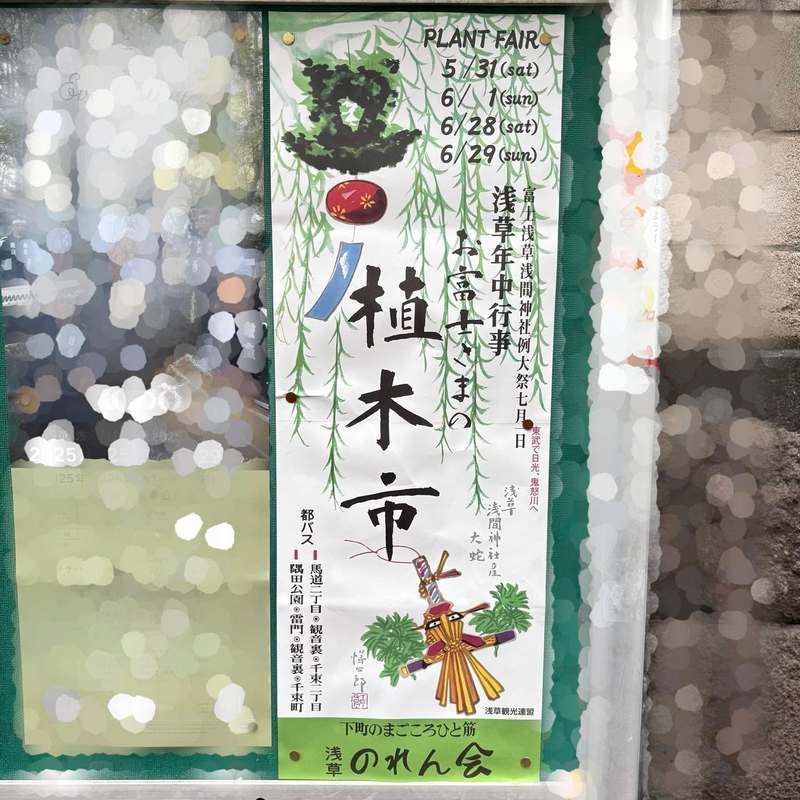 PLANT FAIR
5/31(sat)
6/ 1(sun)
6/28(sat)
6/29(sun)
富士浅草浅間神社例大祭七月一日
浅草年中行事
お富士さまの
植木市
東武で日光、鬼怒川へ
浅草
浅間神社産
大蛇
都バス
馬道二丁目◉観音裏◉千束二丁目
隅田公園◉雷門◉観音裏◉千束町
浅草観光連盟
下町のまごころひと筋
浅草 のれん会
2025